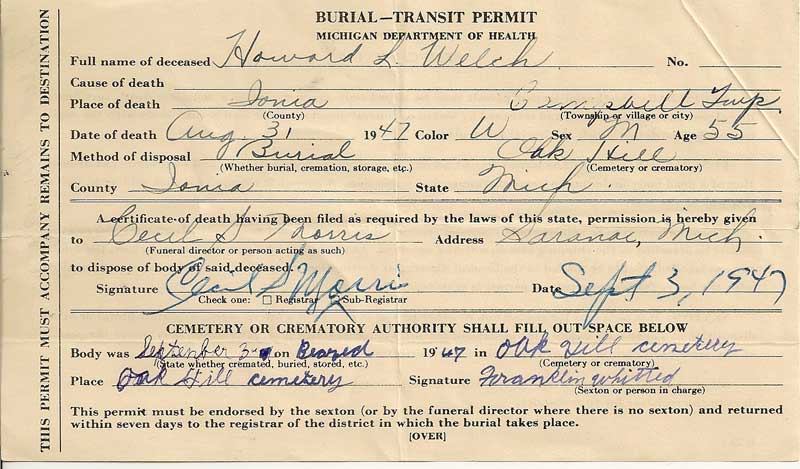 BURIAL—TRANSIT PERMIT
MICHIGAN DEPARTMENT OF HEALTH
Full name of deceased Howard L. Welch No.
Cause of death
Place of death Ionia Campbell Twp.
(County) (Township or village or city)
Date of death Aug. 31 1947 Color W Sex M Age 55
Method of disposal Burial Oak Hill
(Whether burial, cremation, storage, etc.) (Cemetery or crematory)
County Ionia State Mich.
A certificate of death having been filed as required by the laws of this state, permission is hereby given
to Cecil S Morris Address Saranac, Mich.
(Funeral director or person acting as such)
to dispose of body of said deceased.
Signature Cecil S Morris Date Sept 3, 1947
Check one: Registrar Sub-Registrar
CEMETERY OR CREMATORY AUTHORITY SHALL FILL OUT SPACE BELOW
Body was September 3 on Beared 1947 in Oak Hill cemetery
(State whether cremated, buried, stored, etc.) (Cemetery or crematory)
Place Oak Hill cemetery Signature Franklin Whitted
(Sexton or person in charge)
This permit must be endorsed by the sexton (or by the funeral director where there is no sexton) and returned
within seven days to the registrar of the district in which the burial takes place.
[OVER]
THIS PERMIT MUST ACCOMPANY REMAINS TO DESTINATION